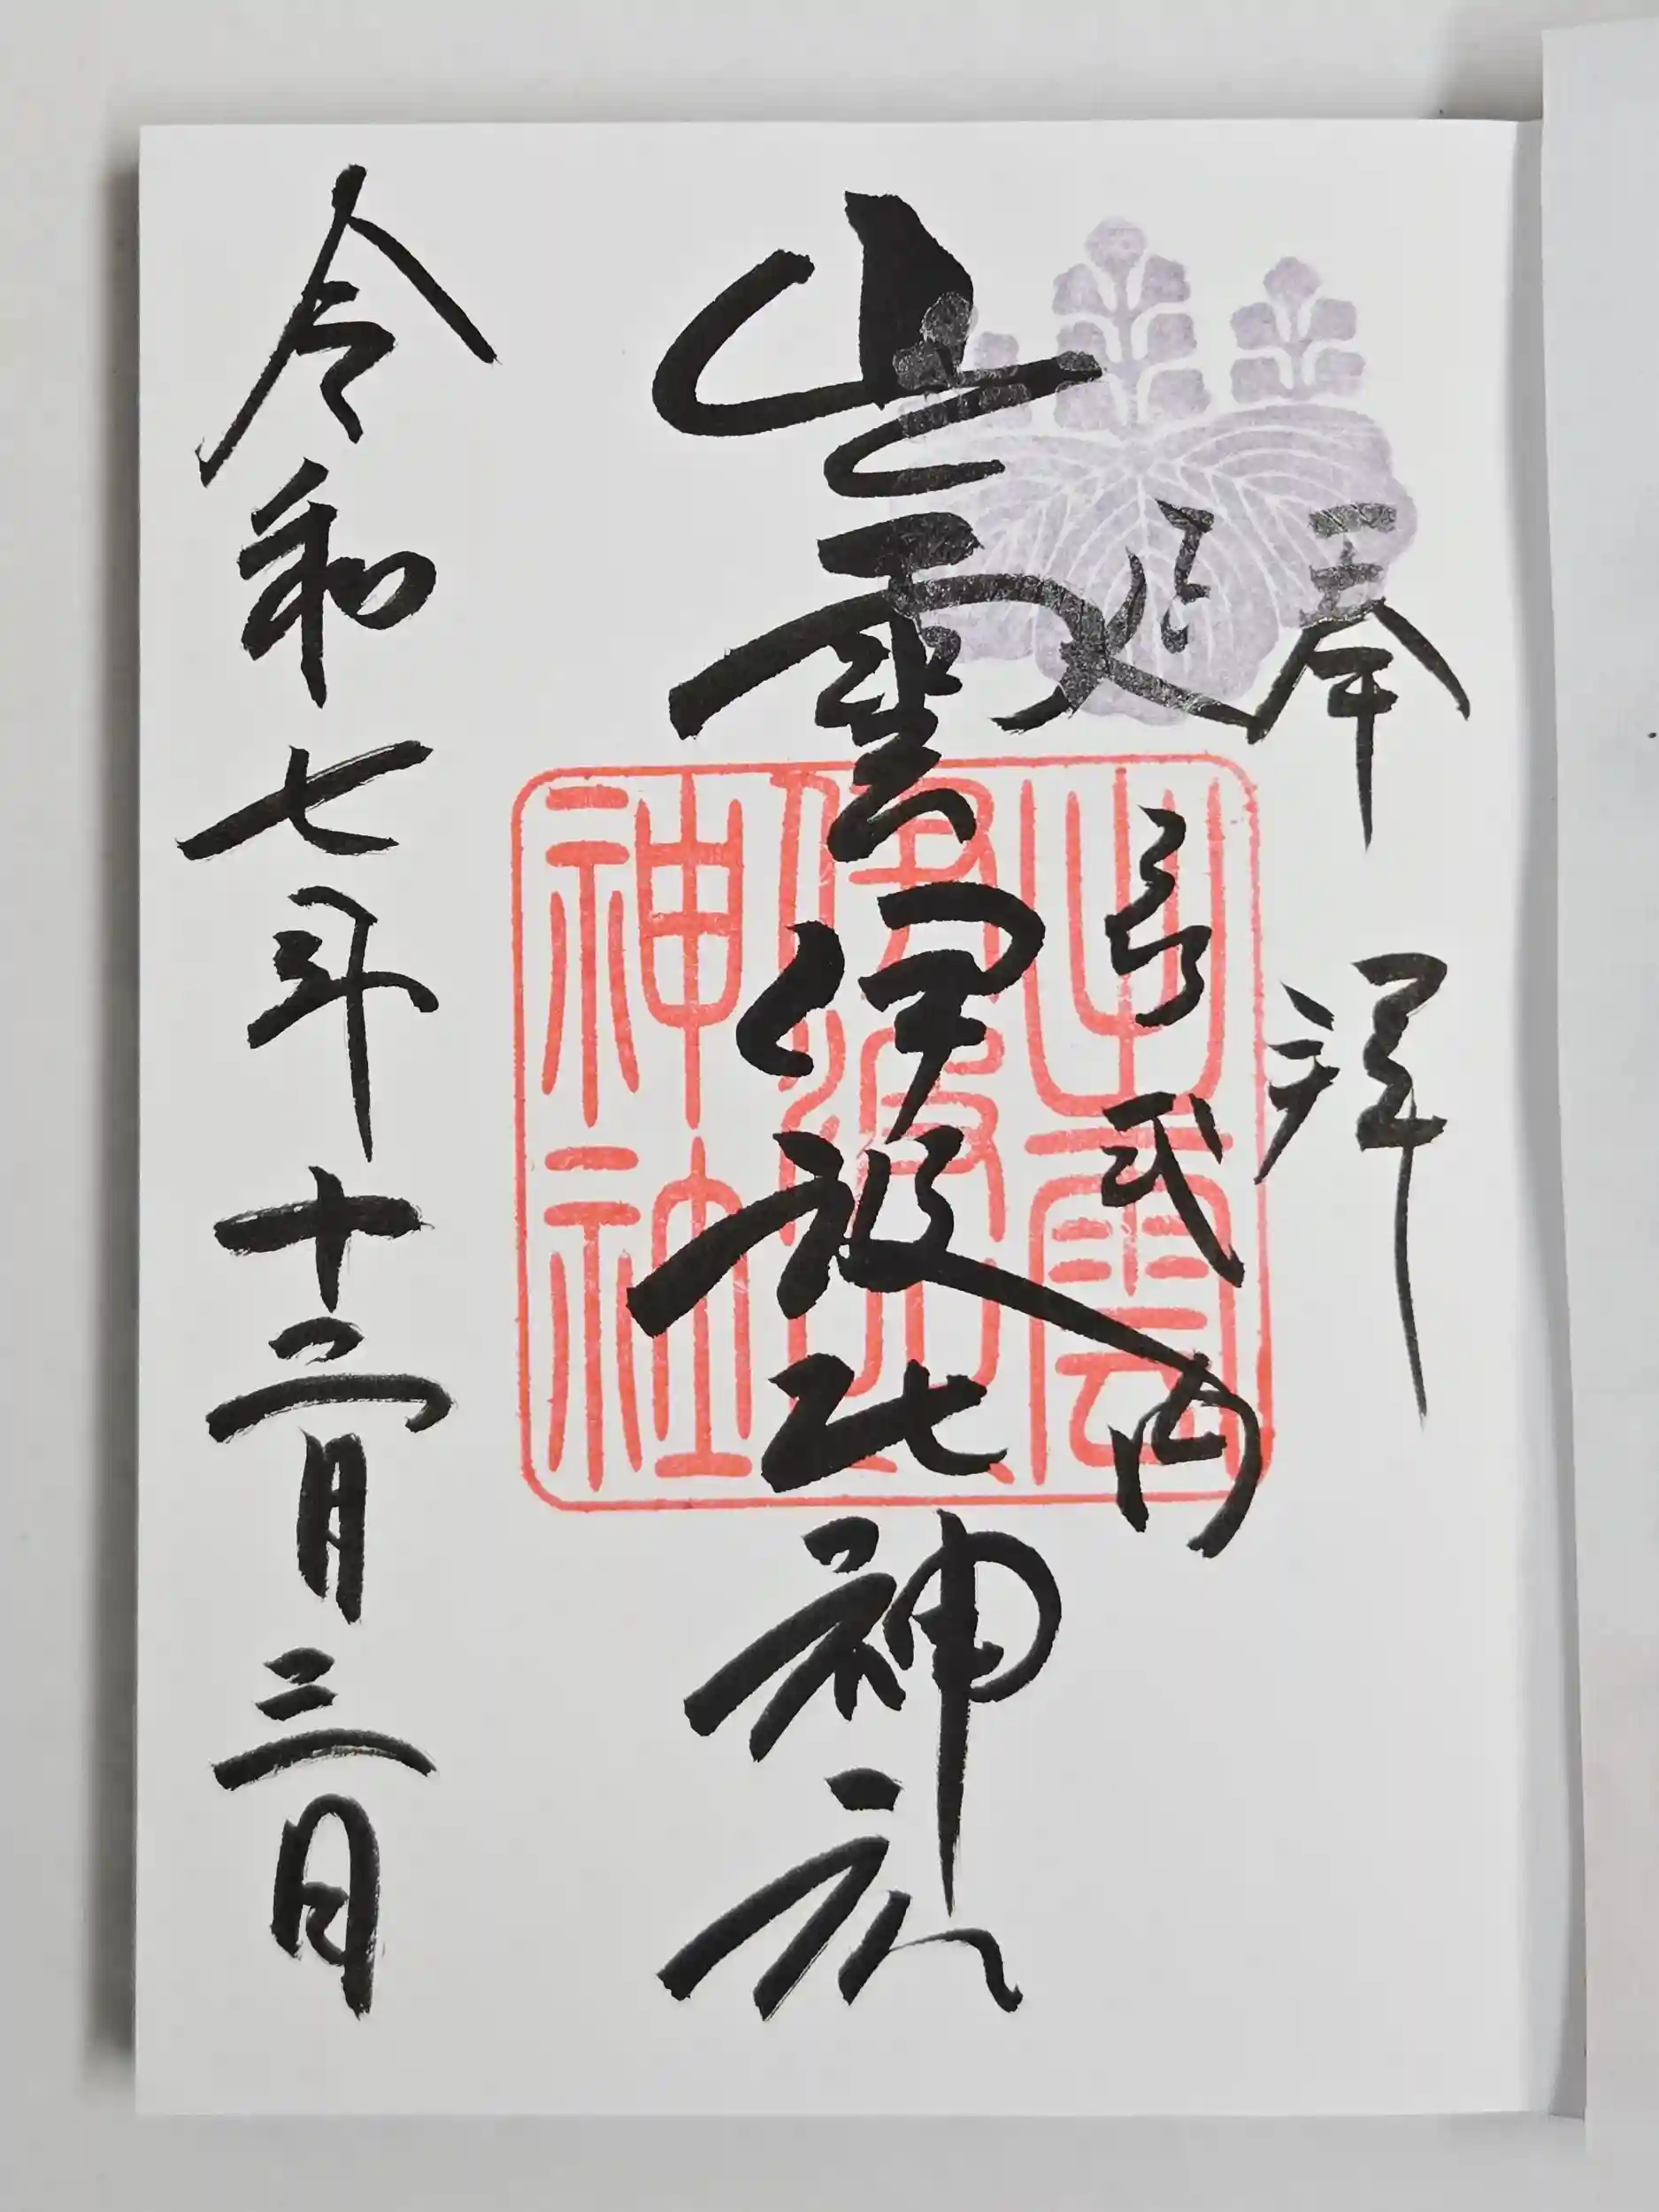 奉拝
延喜式内
出雲伊波比神社
令和七年十二月三日
出雲
伊波比
神社